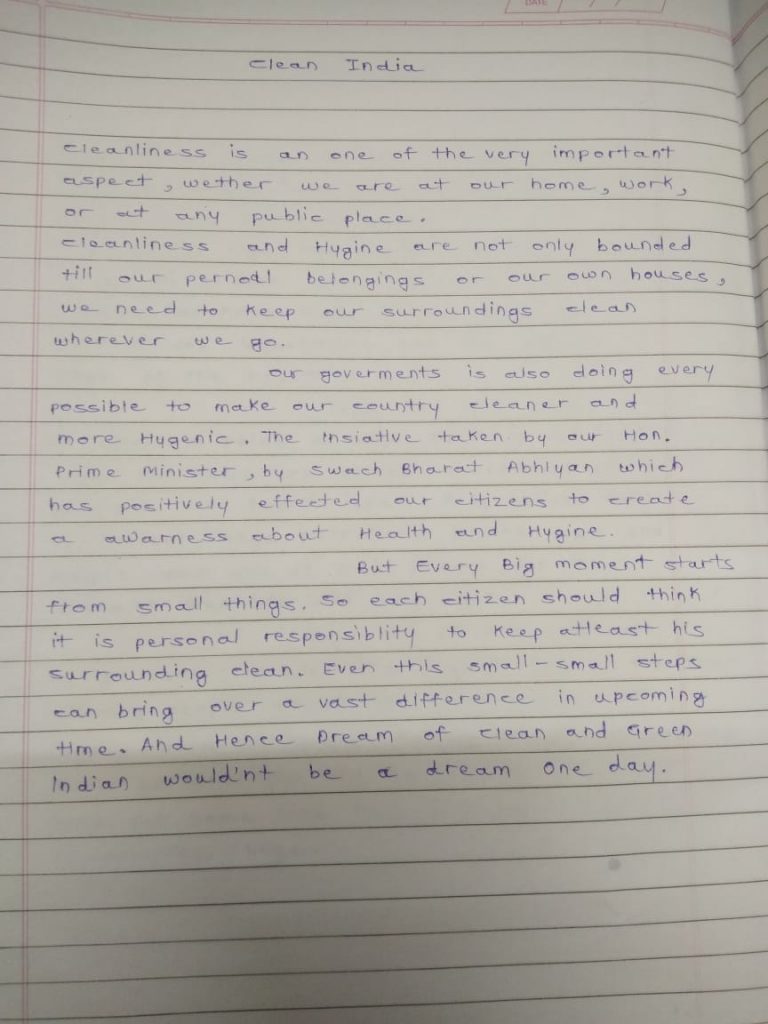 DATE
Clean India
cleanliness is an one of the very important
aspect, wether we are at our home, work,
or at any public place.
cleanliness and Hygine are not only bounded
till our pernodl belongings or our own houses,
we need to keep our surroundings clean
wherever we go.
our goverments is also doing every
possible to make our country cleaner and
more Hygenic. The insiative taken by our Hon.
Prime Minister, by Swach Bharat Abhiyan which
has positively effected our citizens to create
a awarness about Health and Hygine.
But Every Big moment starts
from small things. so each citizen should think
it is personal responsiblity to keep atleast his
surrounding clean. Even this small-small steps
can bring over a vast difference in upcoming
time. And Hence Dream of clean and Green
Indian would'nt be a dream one day.